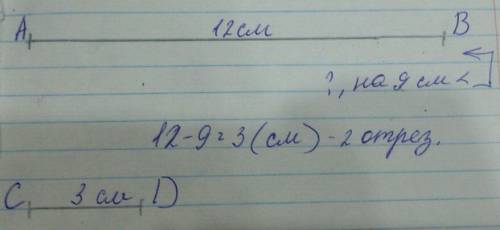 A 12 см B
?, на 9 см <
12-9=3 (см) - 2 отрез.
C 3 см D